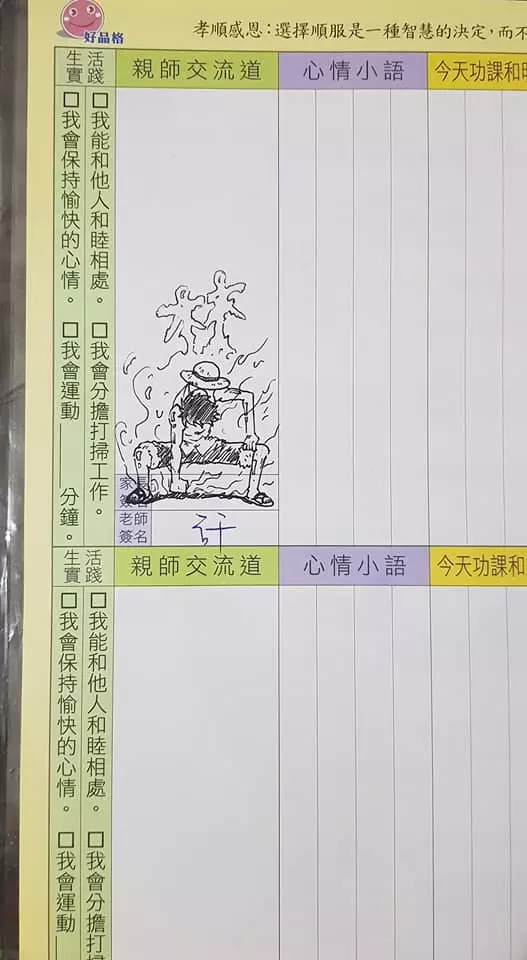 好品格
孝順感恩：選擇順服是一種智慧的決定，而不
生活
實踐
親師交流道
心情小語
今天功課和明
□我能和他人和睦相處。 □我會分擔打掃工作。
□我會保持愉快的心情。 □我會運動____分鐘。
林
家長
簽名
老師
簽名
生活
實踐
親師交流道
心情小語
今天功課和
□我能和他人和睦相處。 □我會分擔打掃
□我會保持愉快的心情。 □我會運動